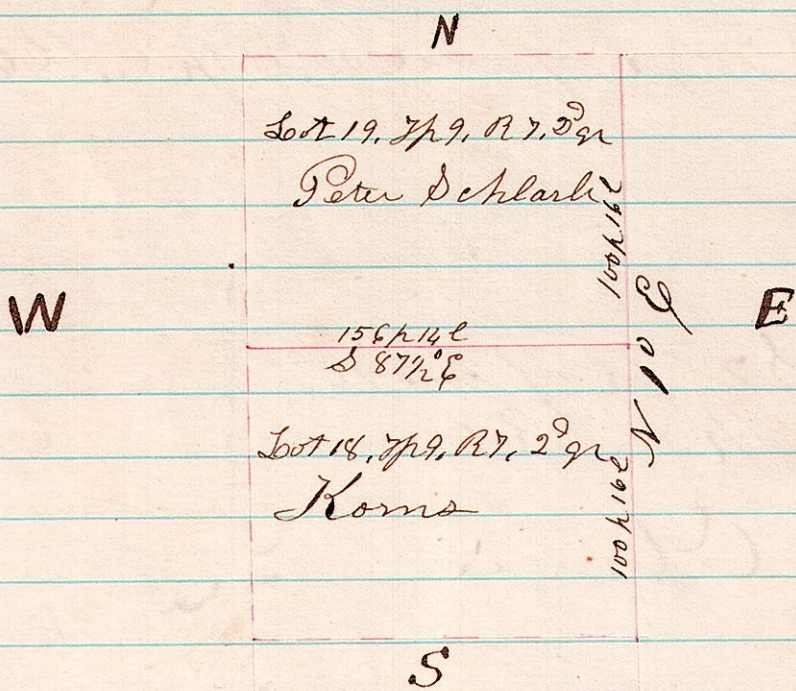 N
Lot 19, Tp 9, R 7, 2d qr
Peter Schlarb
100p 16l
W
E
156p 14l
S 87½° E
N 1° E
Lot 18, Tp 9, R 7, 2d qr
Korns
100p 16l
S